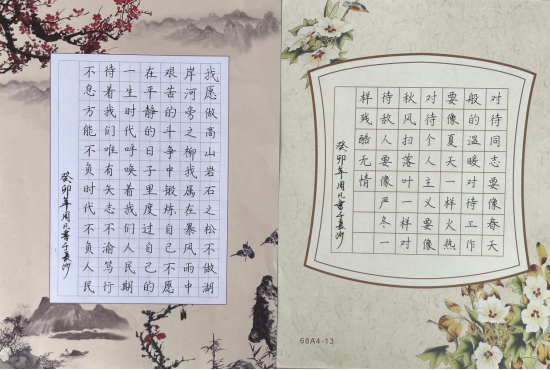 我愿做高山岩石之松不做湖
岸河旁之柳我愿在暴风雨中
艰苦的斗争中锻炼自己不愿
在平静的日子里度过自己的
一生时代呼唤着我们人民期
待着我们唯有矢志不渝笃行
不怠方能不负时代不负人民
癸卯年周凡書于長沙
对待同志要像春天
般的温暖对待工作
要像夏天一样火热
对待个人主义要像
秋风扫落叶一样对
待敌人要像严冬一
样残酷无情
癸卯年周凡書于長沙
68A4-13